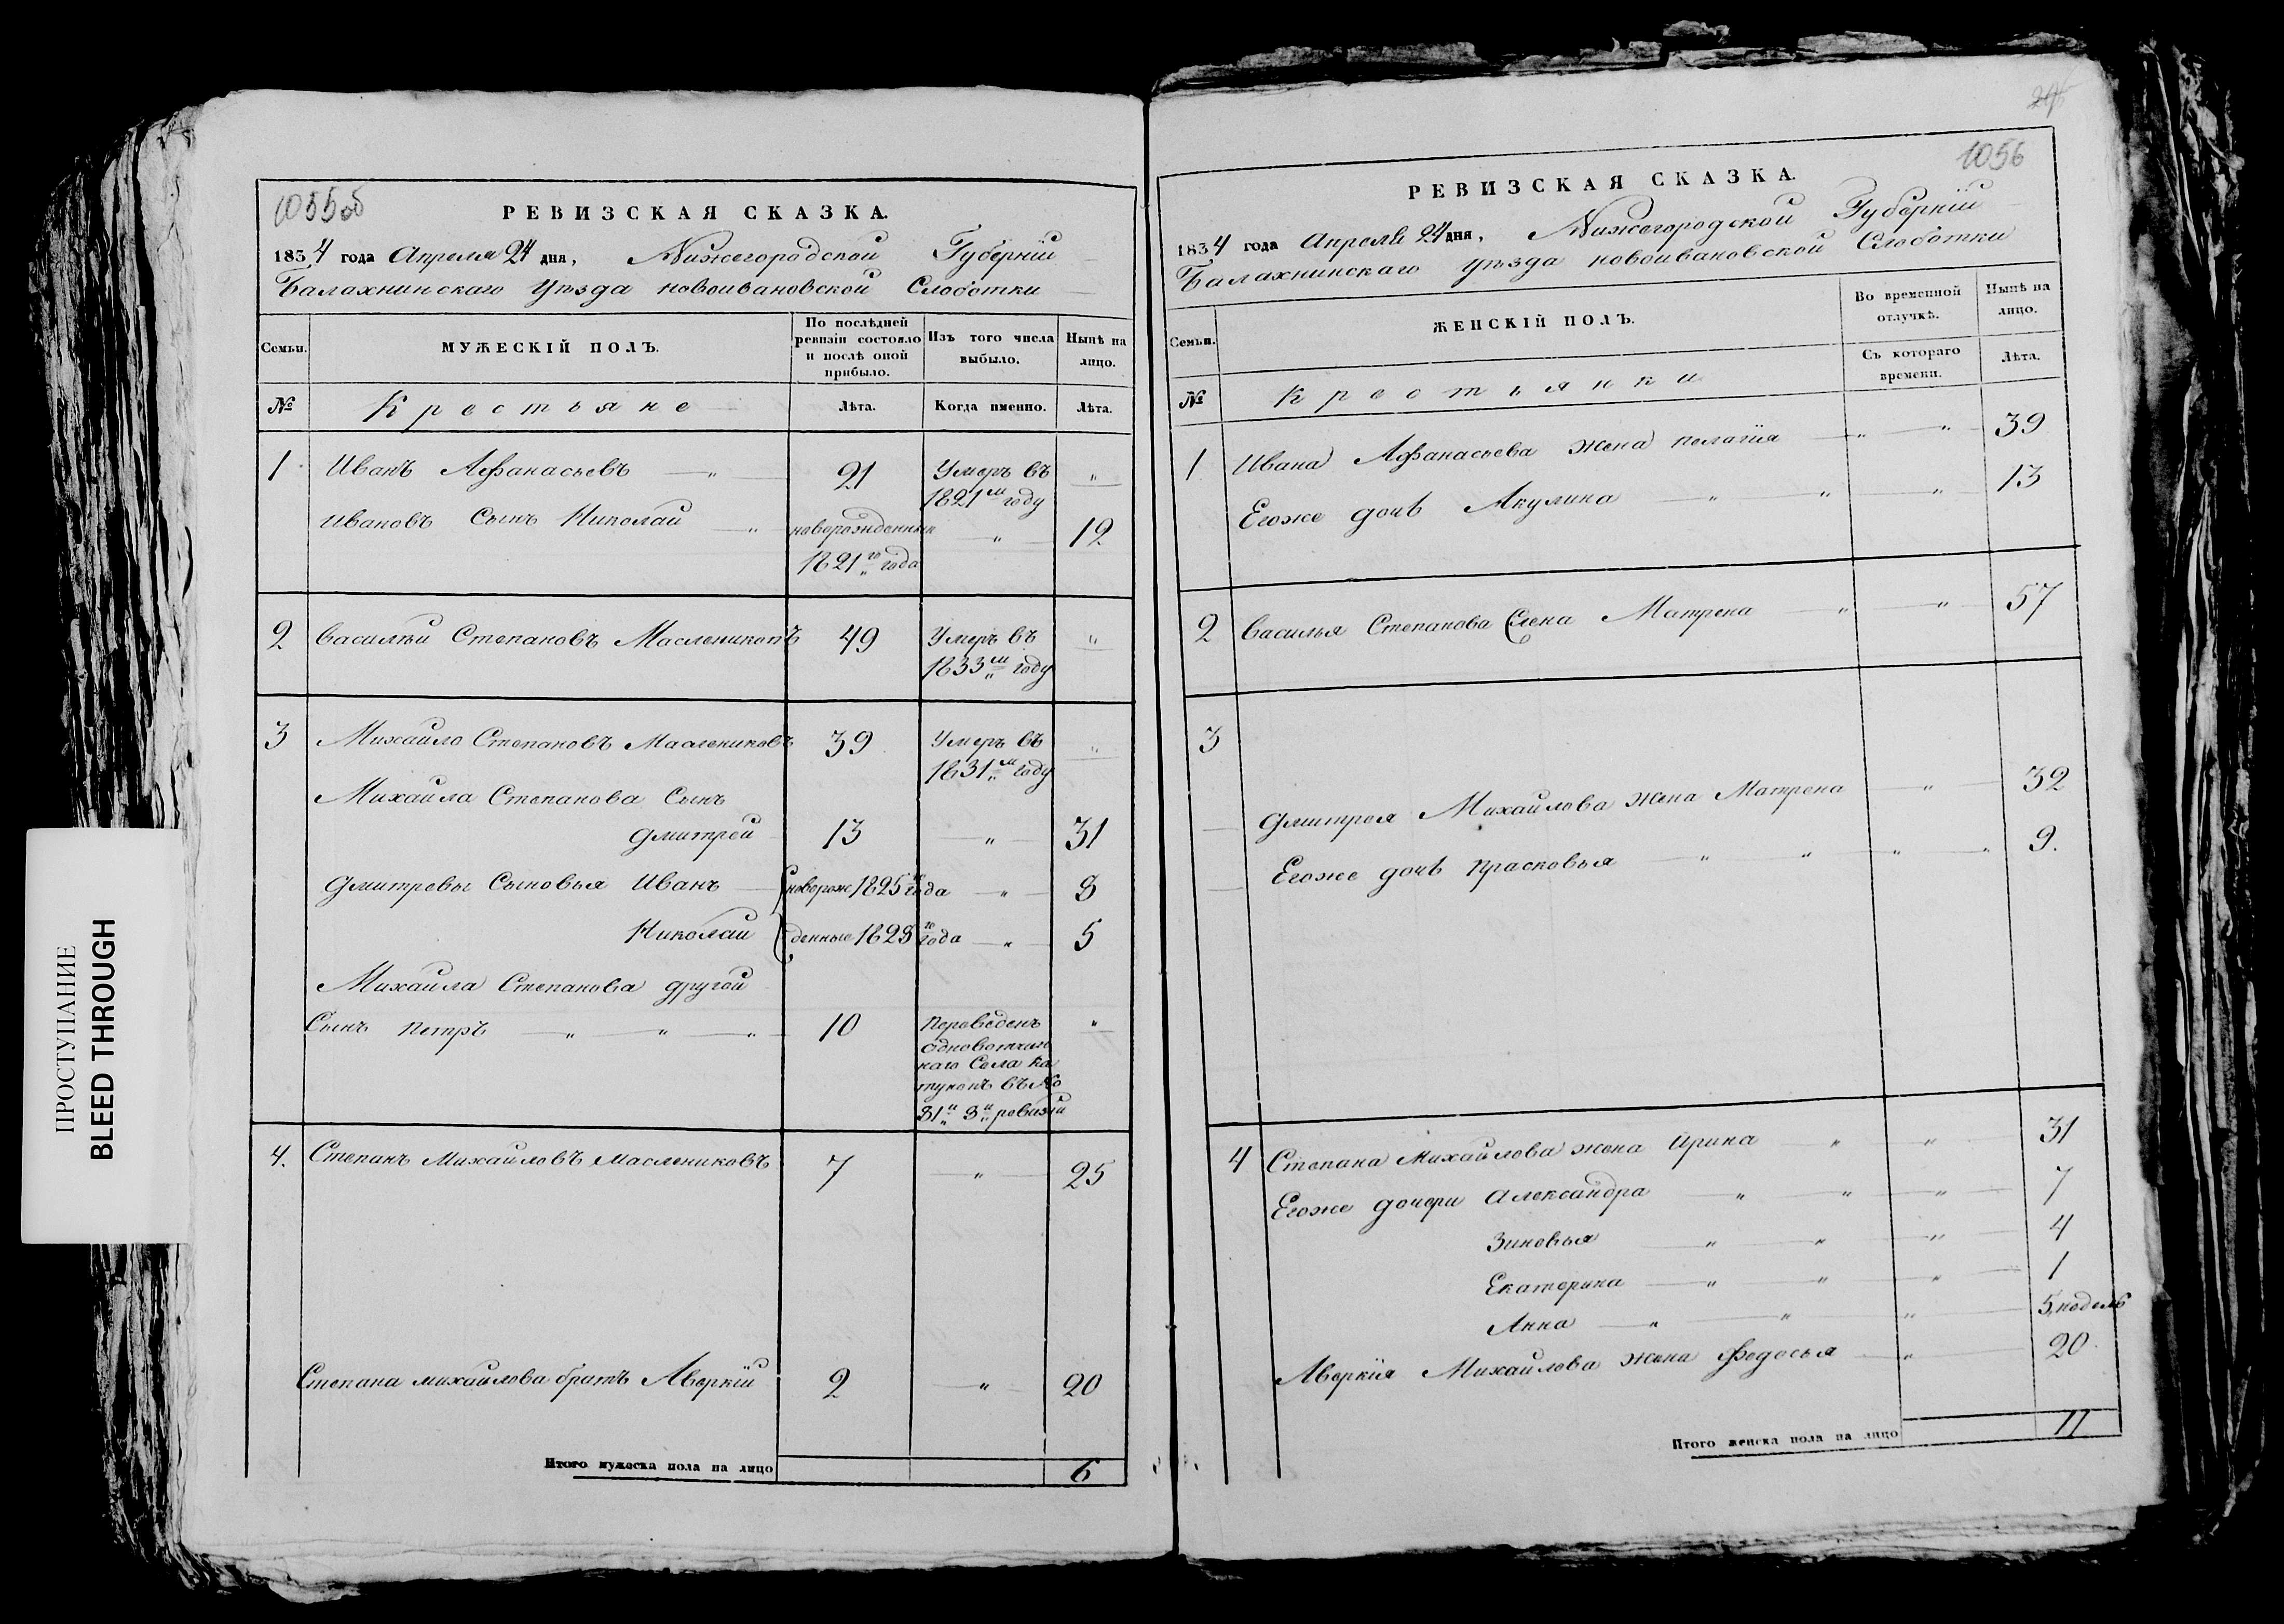 ПРОСТУПАНИЕ
BLEED THROUGH
1055об
РЕВИЗСКАЯ СКАЗКА.
1834 года Апреля 24 дня, Нижегородской Губерніи
Балахнинскаго уѣзда новоивановской Слоботки
Семьи.
МУЖЕСКІЙ ПОЛЪ.
По послѣдней ревизіи состояло и послѣ оной прибыло.
Изъ того числа выбыло.
Нынѣ на лицо.
№ Крестьяне Лѣта. Когда именно. Лѣта.
1 Иванъ Афанасьевъ — " 21 Умеръ въ "
1821м году
Ивановъ Сынъ Николай — " новорожденный — " — 12
1821го года
2 Василѣй Степановъ Маслениковъ 49 Умеръ въ "
1833м году
3 Михайло Степановъ Маслениковъ 39 Умеръ въ "
1831м году
Михайла Степанова Сынъ
Дмитрей 13 — " — 31
Дмитревы Сыновья Иванъ — новорож 1825го года — " — 8
Николай денные 1828го года — " 5
Михайла Степанова другой
Сынъ Петръ — " — " — " 10 Переведенъ "
одновотчин
наго Села Ка
тунокъ въ №
81й 8й ревизіи
4. Степанъ Михайловъ Маслениковъ 7 — " — 25
Степана Михайлова братъ Аверкій 2 — " — 20
Итого мужеска пола на лицо 6
1056
РЕВИЗСКАЯ СКАЗКА.
1834 года Апреля 24 дня, Нижегородской Губерніи
Балахнинскаго уѣзда новоивановской Слоботки
Семьи.
ЖЕНСКІЙ ПОЛЪ.
Во временной отлучкѣ.
Нынѣ на лицо.
Съ котораго времени.
Лѣта.
№ Крестьянки
1 Ивана Афанасьева жена Пелагія — " — " — 39
Егоже дочь Акулина — " — " — " — 13
2 Василья Степанова жена Матрена — " — " — 57
3
Дмитрея Михайлова жена Матрена — " — 32
Егоже дочь Прасковья — " — " — " — " 9.
4 Степана Михайлова жена Ирина — " — " — 31
Егоже дочери Александра " — " — " — 7
Зиновья — " — " — " 4
Екатерина — " — " — " — 1
Анна — " — " — " — 5 недель
Аверкія Михайлова жена Федосья — " — 20
Итого женска пола на лицо 11